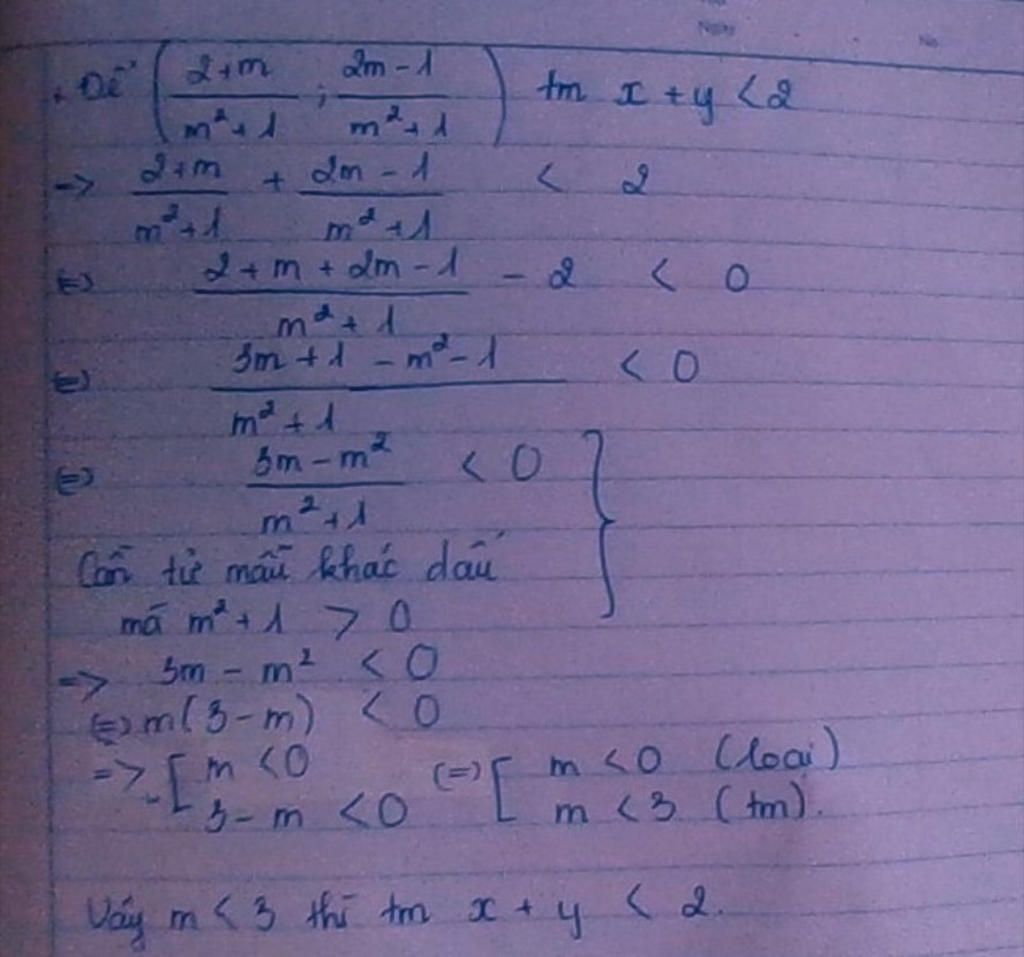 Ngày No
+ Để ( (2+m)/(m²+1) ; (2m-1)/(m²+1) ) tm x + y < 2
=> (2+m)/(m²+1) + (2m-1)/(m²+1) < 2
(=) (2+m+2m-1)/(m²+1) - 2 < 0
(=) (3m+1-m²-1)/(m²+1) < 0
(=) (3m-m²)/(m²+1) < 0 }
Cần tử mẫu khác dấu
mà m²+1 > 0
=> 3m - m² < 0
(=) m(3-m) < 0
=> [ m < 0 (=) [ m < 0 (loại)
3-m < 0 m < 3 (tm).
Vậy m < 3 thì tm x + y < 2.